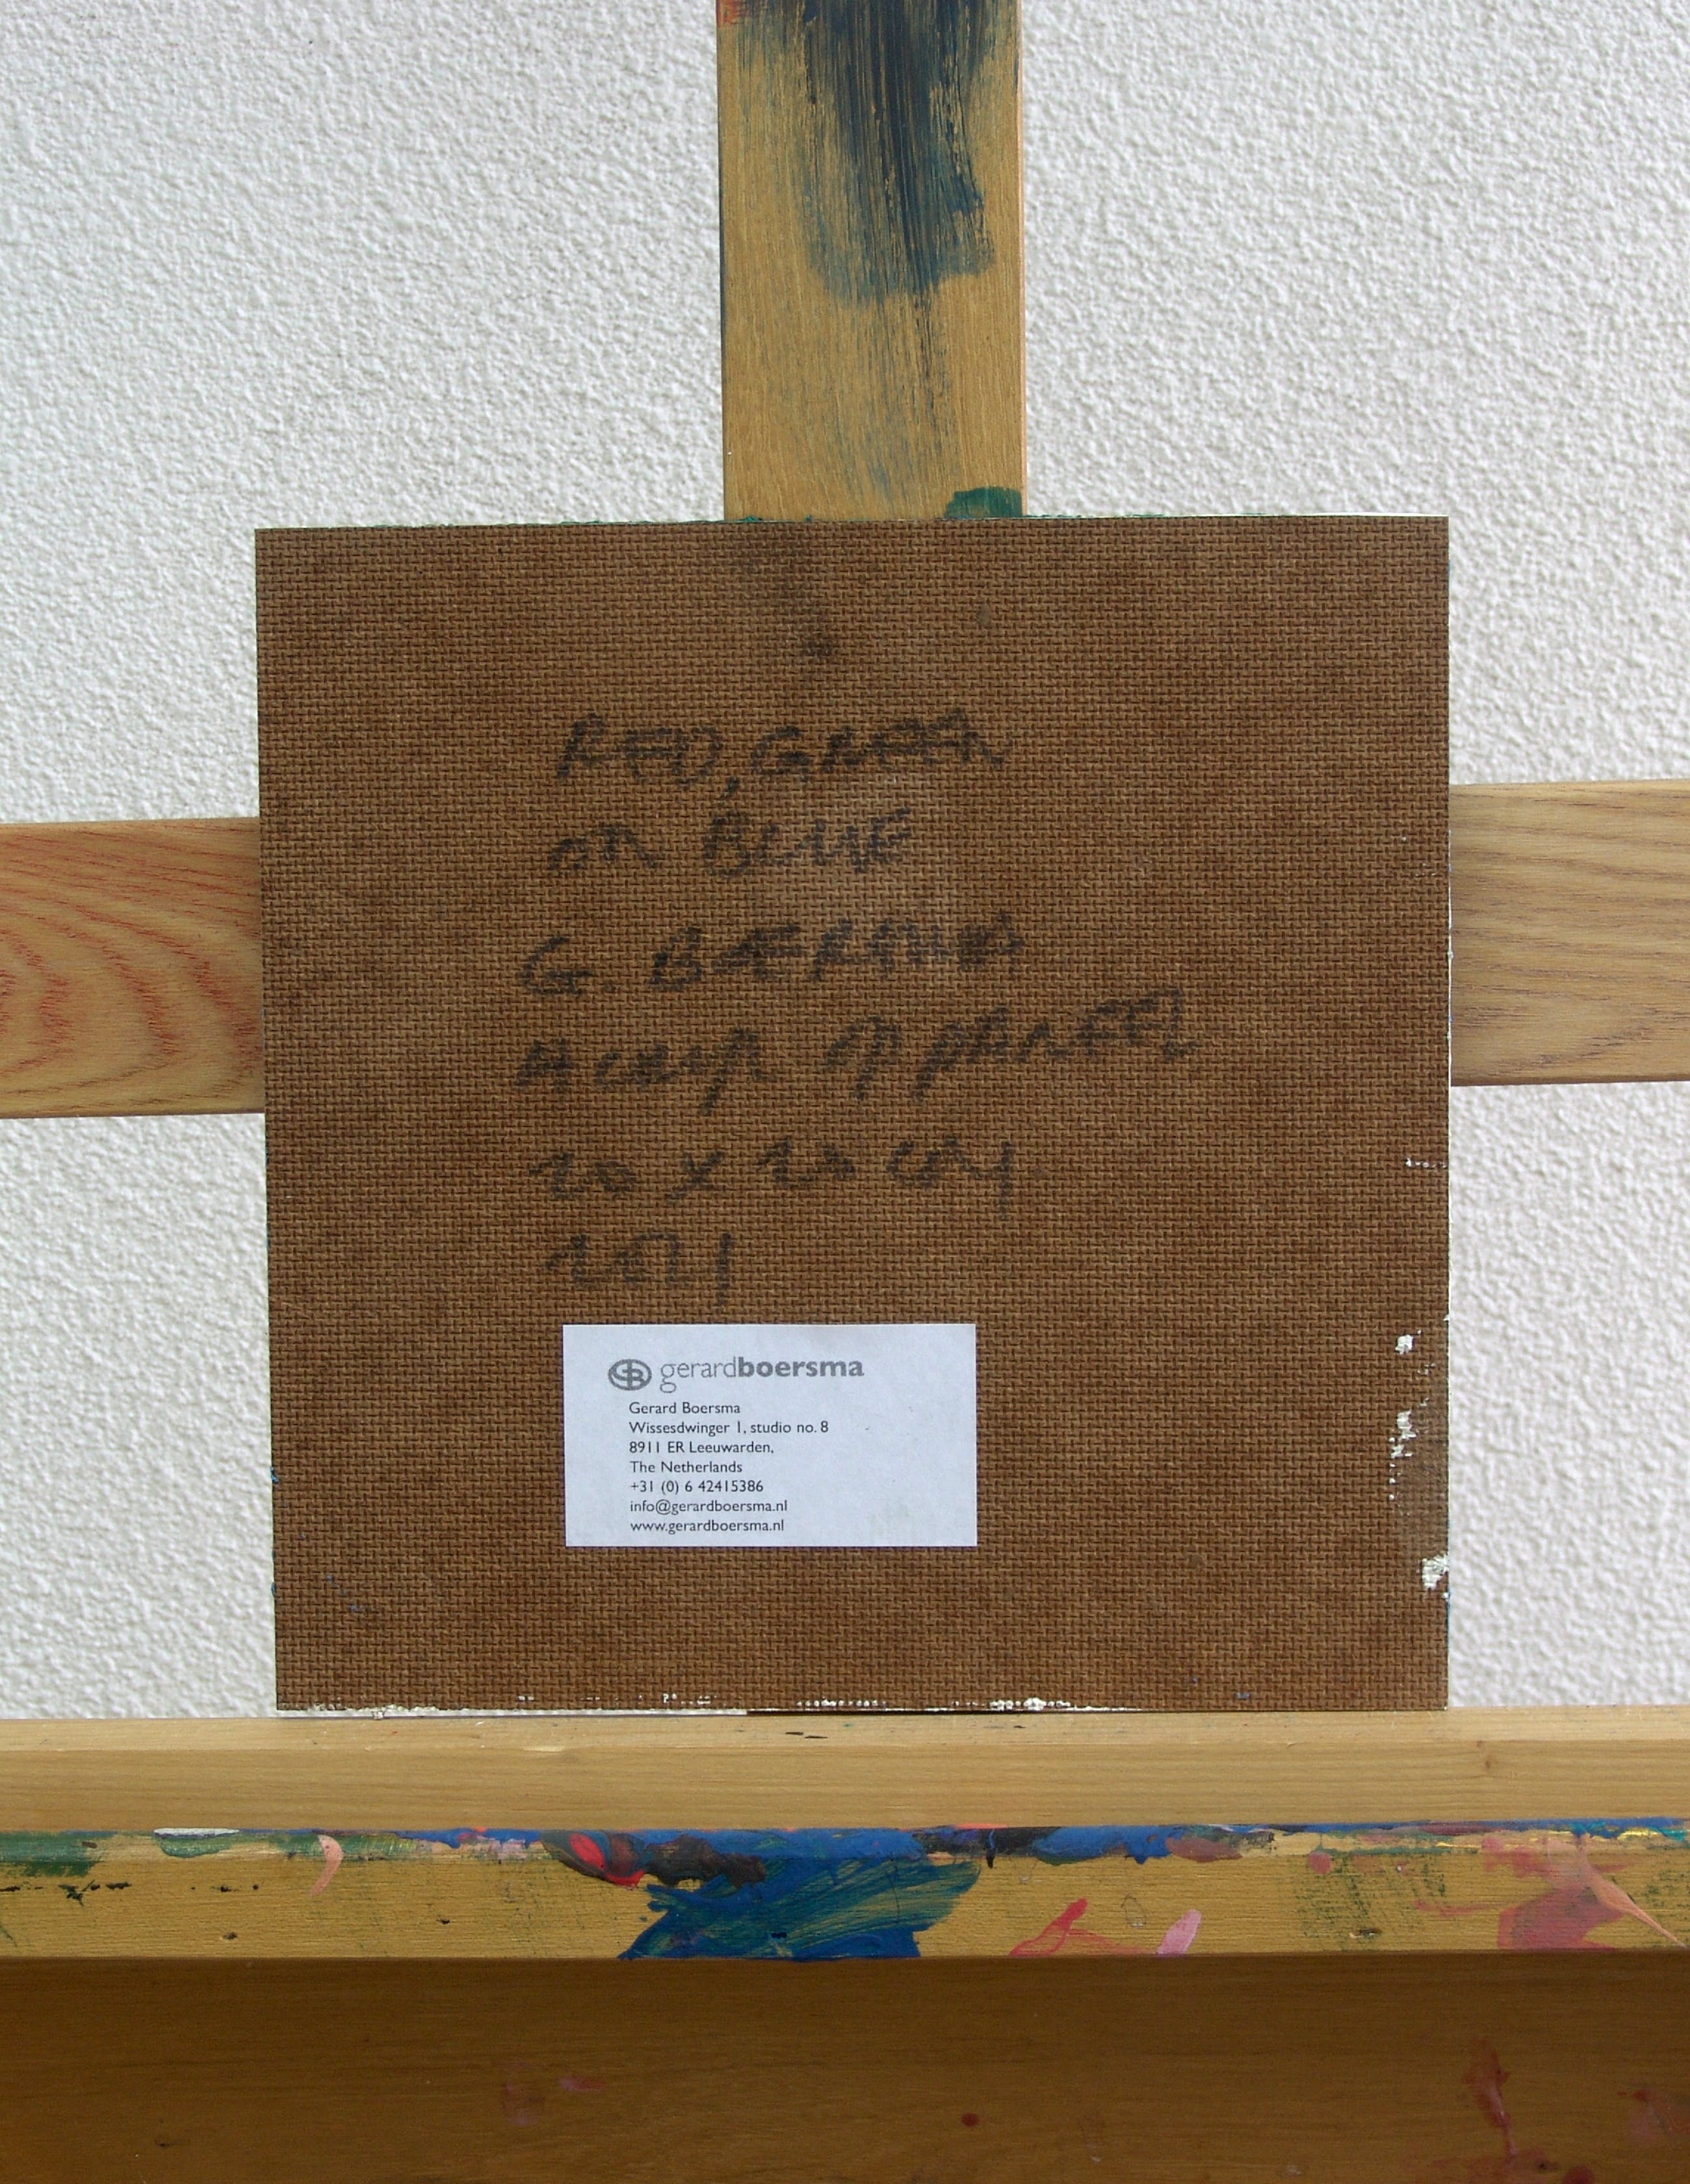 RED, GREEN
on BLUE
G. BOERSMA
Acryl op paneel
20 x 20 cm
2021
gerardboersma
Gerard Boersma
Wissesdwinger 1, studio no. 8
8911 ER Leeuwarden,
The Netherlands
+31 (0) 6 42415386
info@gerardboersma.nl
www.gerardboersma.nl